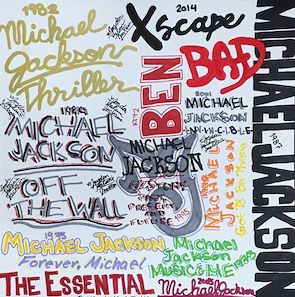 1982
Michael
Jackson
Thriller
2014
Xscape
BEN
1972
BAD
1987
MICHAEL JACKSON
2001
MICHAEL
JACKSON
INVINCIBLE
1979
MICHAEL
JACKSON
OFF
THE WALL
MICHAEL
JACKSON
HISTORY
PAST
PRESENT
AND
FUTURE
1995
MICHAEL
JACKSON
Got To Be There
1975
MICHAEL JACKSON
Forever, Michael
Michael
Jackson
MUSIC & ME
1973
THE ESSENTIAL
2005
Michael Jackson